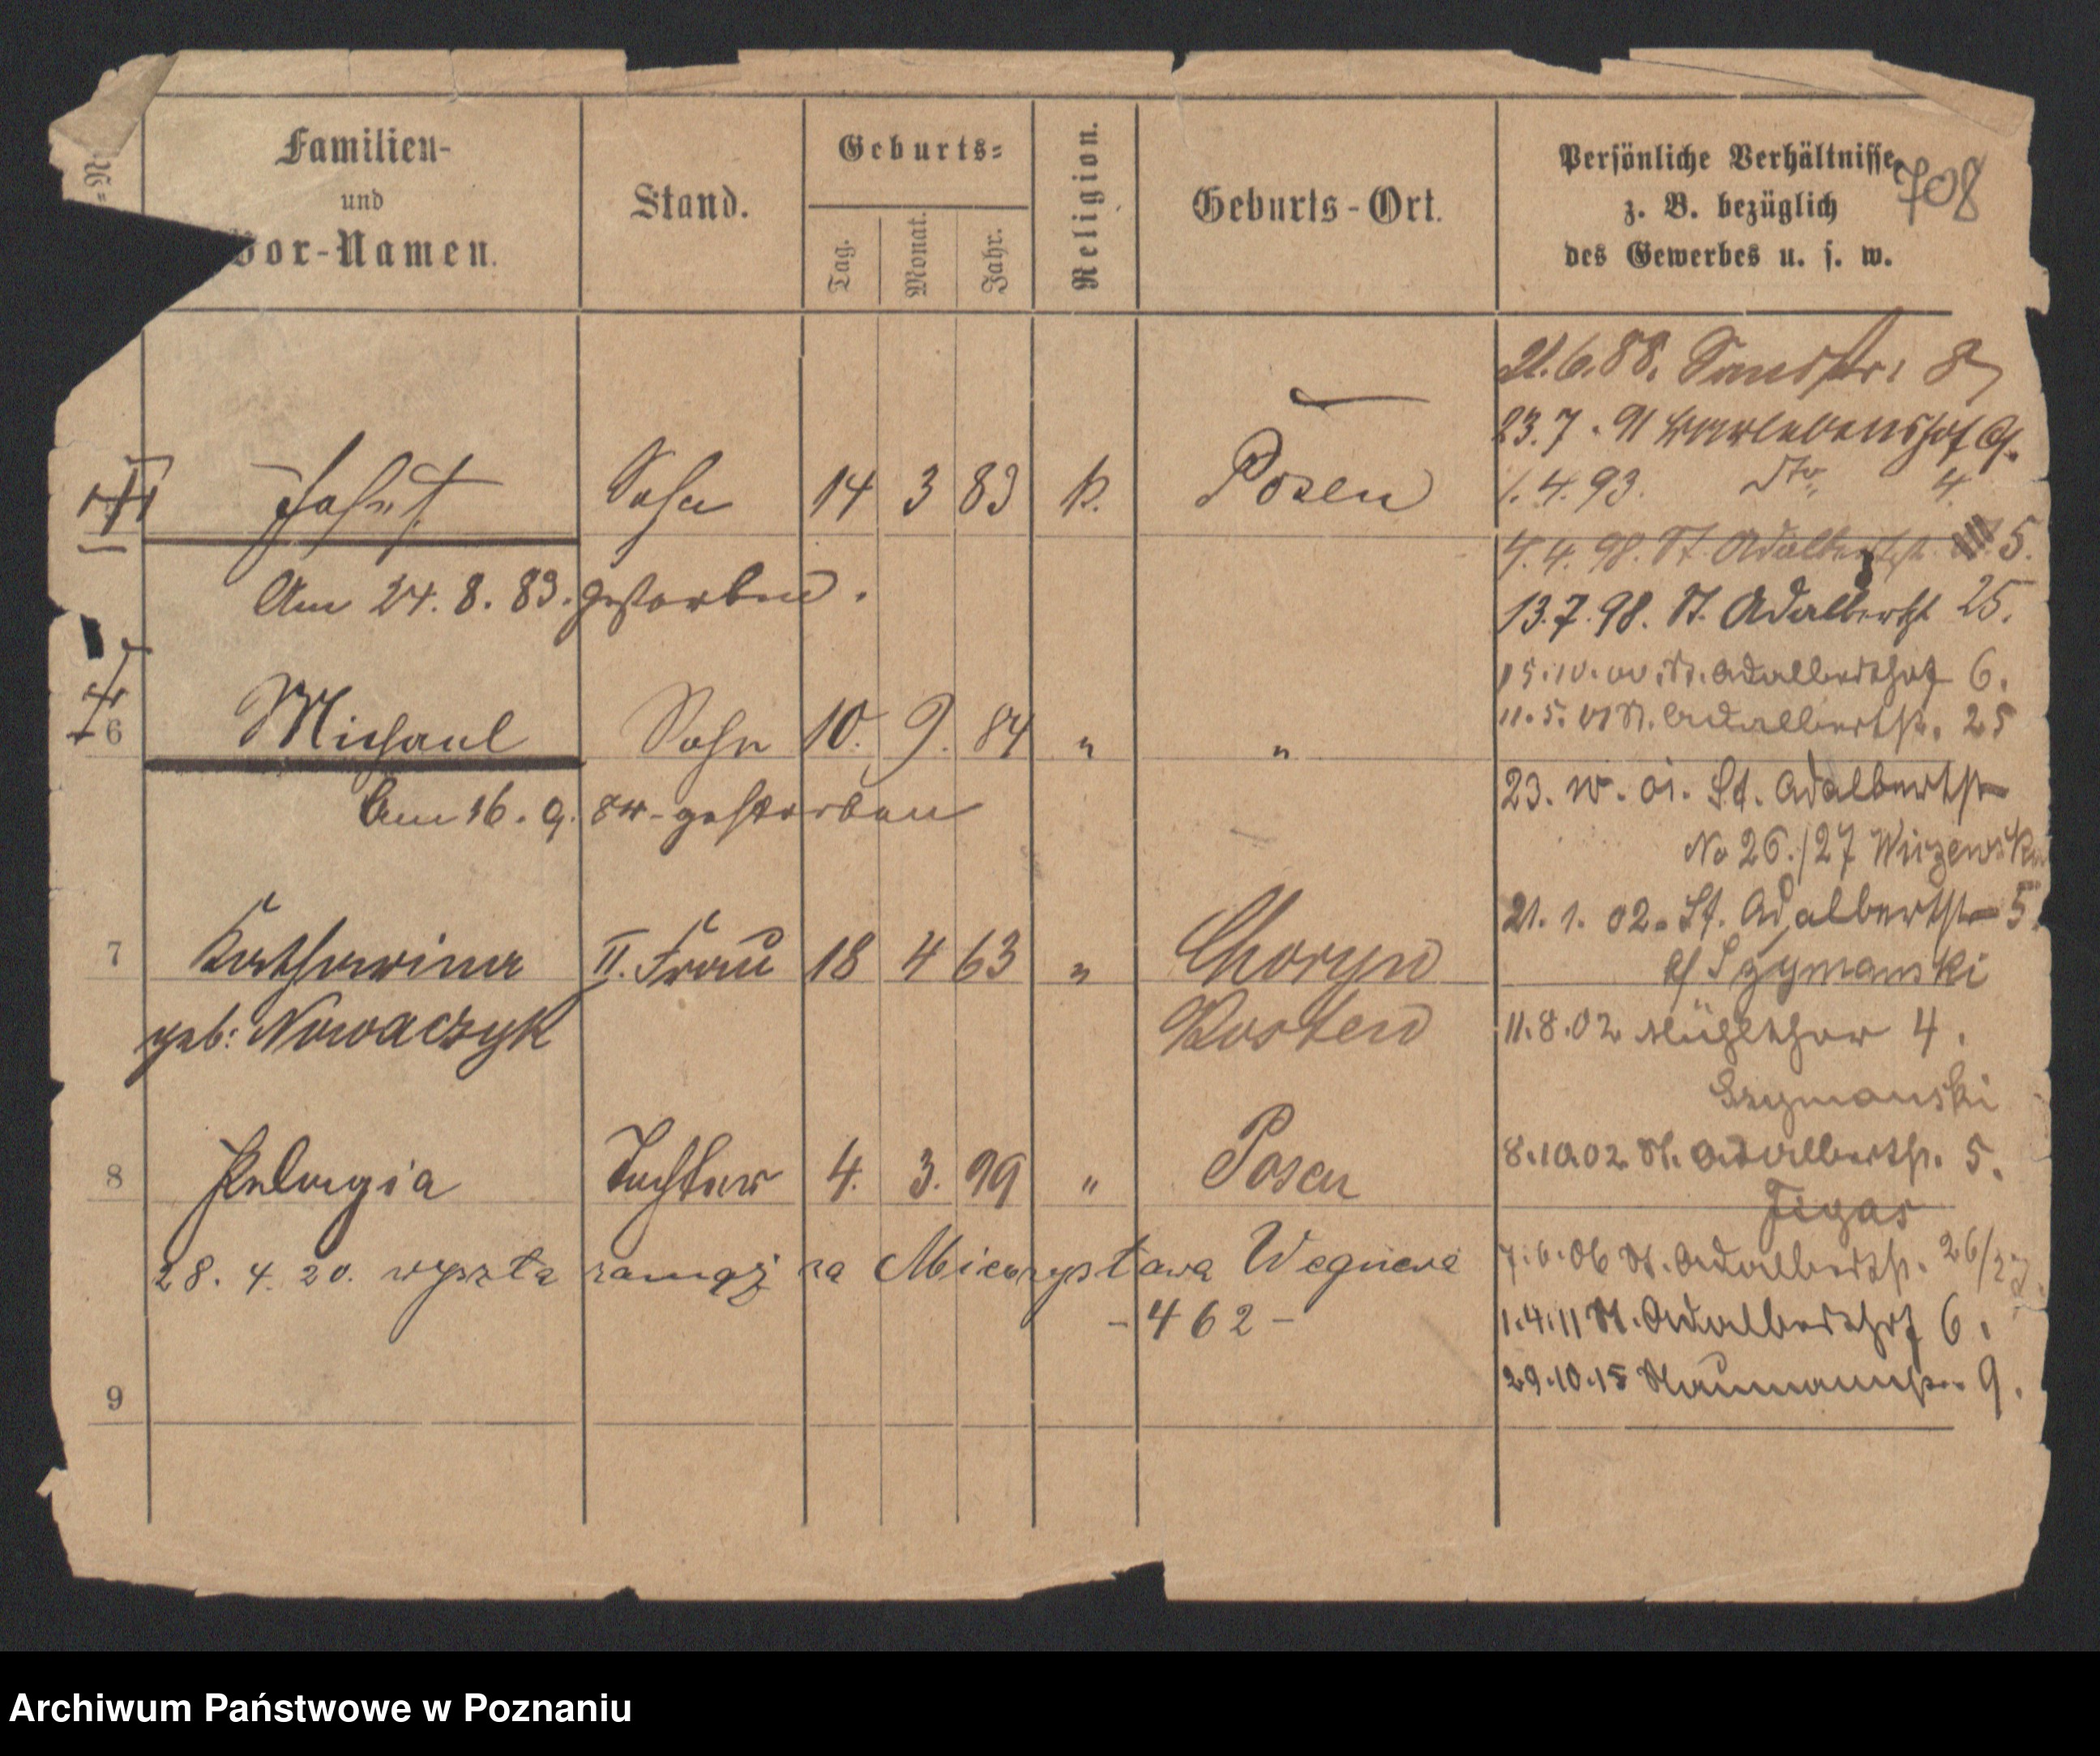 Familien-
und
Vor-Namen.
Stand.
Geburts-
Tag.
Monat.
Jahr.
Religion.
Geburts-Ort.
Persönliche Verhältnisse
z. B. bezüglich
des Gewerbes u. s. w.
708
Sohn 14 3 83 k. Posen
Am 24. 8. 83. gestorben.
6 Michael Sohn 10. 9. 84 " "
Am 16. 9. 84 - gestorben
7 Katharina II. Frau 18 4 63 " Choryn
geb: Nowaczyk Kosten
8 Pelagia Tochter 4. 3. 99 " Posen
28. 4. 20. wyszła zamąż za Mieczysława Wegnera
- 462 -
9
21.6.88. Sandstr. 8
23.7.91
1.4.93. Dto. 4
4.4.98. St. Adalbertst. 5.
13.7.98. St. Adalbertst 25.
15.10.00. St. Adalberthof 6.
11.5.01 St. Adalbertstr. 25
23. 10. 01. St. Adalbertstr
No 26./27
21. 1. 02. St. Adalbertstr 5.
b/ Szymanski
11.8.02 Mühlthor 4.
Szymanski
8.10.02. St. Adalbertstr. 5.
Figas
7.6.06 St. Adalbertstr. 26/27
1.4.11 St. Adalberthof 6.
29.10.15 Naumannstr. 9.
Archiwum Państwowe w Poznaniu